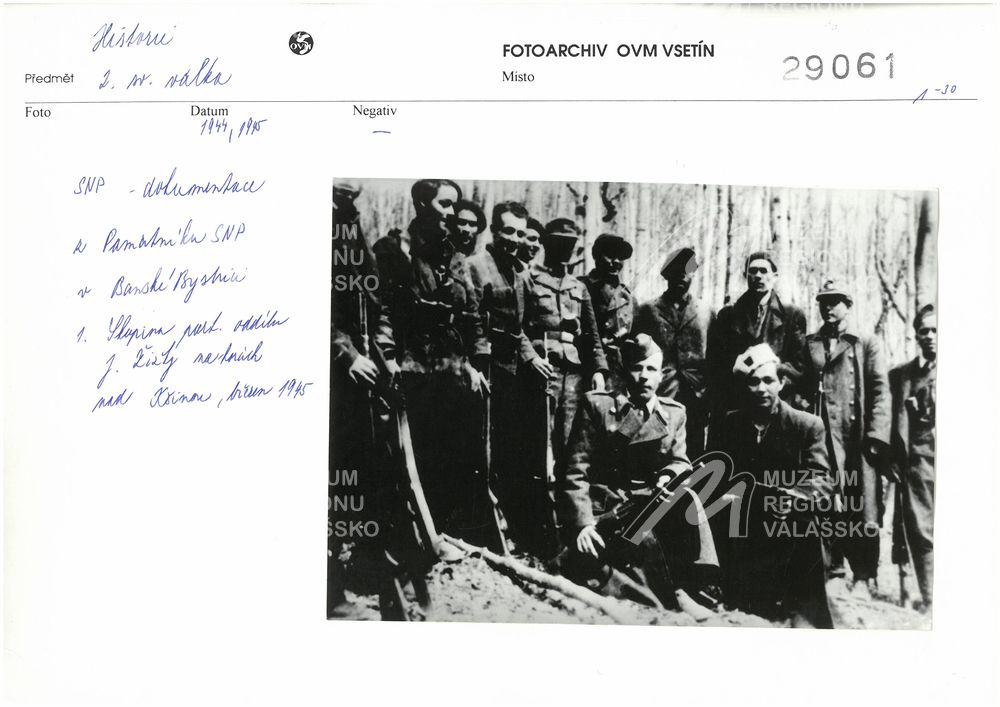 Historie
OVM
FOTOARCHIV OVM VSETÍN
Předmět 2. sv. válka
Místo
29061
1-30
Foto
Datum
1944, 1945
Negativ
—
SNP - dokumentace
z Památníku SNP
v Banské Bystrici
1. Skupina part. oddílu
J. Žižky na horách
nad březen 1945
MUZEUM
REGIONU
VALAŠSKO
MUZEUM
REGIONU
VALAŠSKO